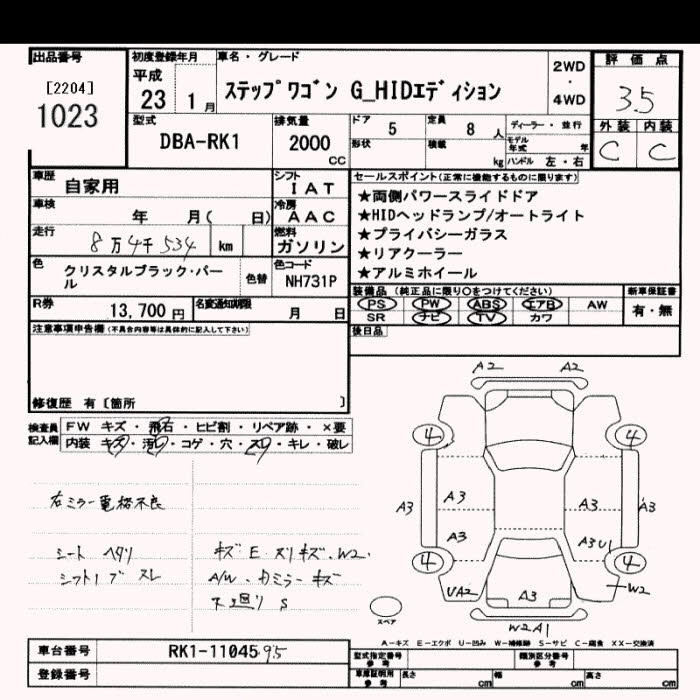 出品番号 初度登録年月 車名・グレード 2WD・4WD 評価点
[2204] 平成 23 1月 ステップワゴン G_HIDエディション 3.5
1023 外装 内装
型式 排気量 ドア 5 定員 8人 ディーラー・並行 C C
DBA-RK1 2000 CC 形状 積載 kg モデル年式 年 ハンドル 左・右
車歴 自家用 シフト IAT セールスポイント(正常に機能するものに限ります)
車検 年 月( 日) 冷房 AAC ★両側パワースライドドア
★HIDヘッドランプ/オートライト
走行 8万4千534 km 燃料 ガソリン ★プライバシーガラス
★リアクーラー
色 クリスタルブラック・パール 色替 色コード NH731P ★アルミホイール
装備品(純正品に限り○をつけてください) 新車保証書
R券 13,700円 名変通知期限 月 日 PS PW ABS エアB AW 有・無
SR ナビ TV カワ
注意事項申告欄(不具合内容等は具体的に記入して下さい) 後日品
修復歴 有[箇所 ]
検査員記入欄 FW キズ・飛石・ヒビ割・リペア跡・×要
内装 キズ・汚レ・コゲ・穴・スレ・キレ・破レ
A2 A2
4 4
右ミラー電格不良
A3 A3 A3 A3
A3 A3U1
シート ヘタリ キズE スリキズ.W2.
4 4
シフトノブ スレ A/W.カミラーキズ
UA2 A3 W2
下廻りS
スペア
W2A1
A-キズ E-エクボ U-凹み W-補修跡 S-サビ C-腐食 XX-交換済
車台番号 RK1-1104595 型式指定番号 参考 類別区分番号 参考
登録番号 車庫証明用 参考 長さ cm 幅 cm 高さ cm